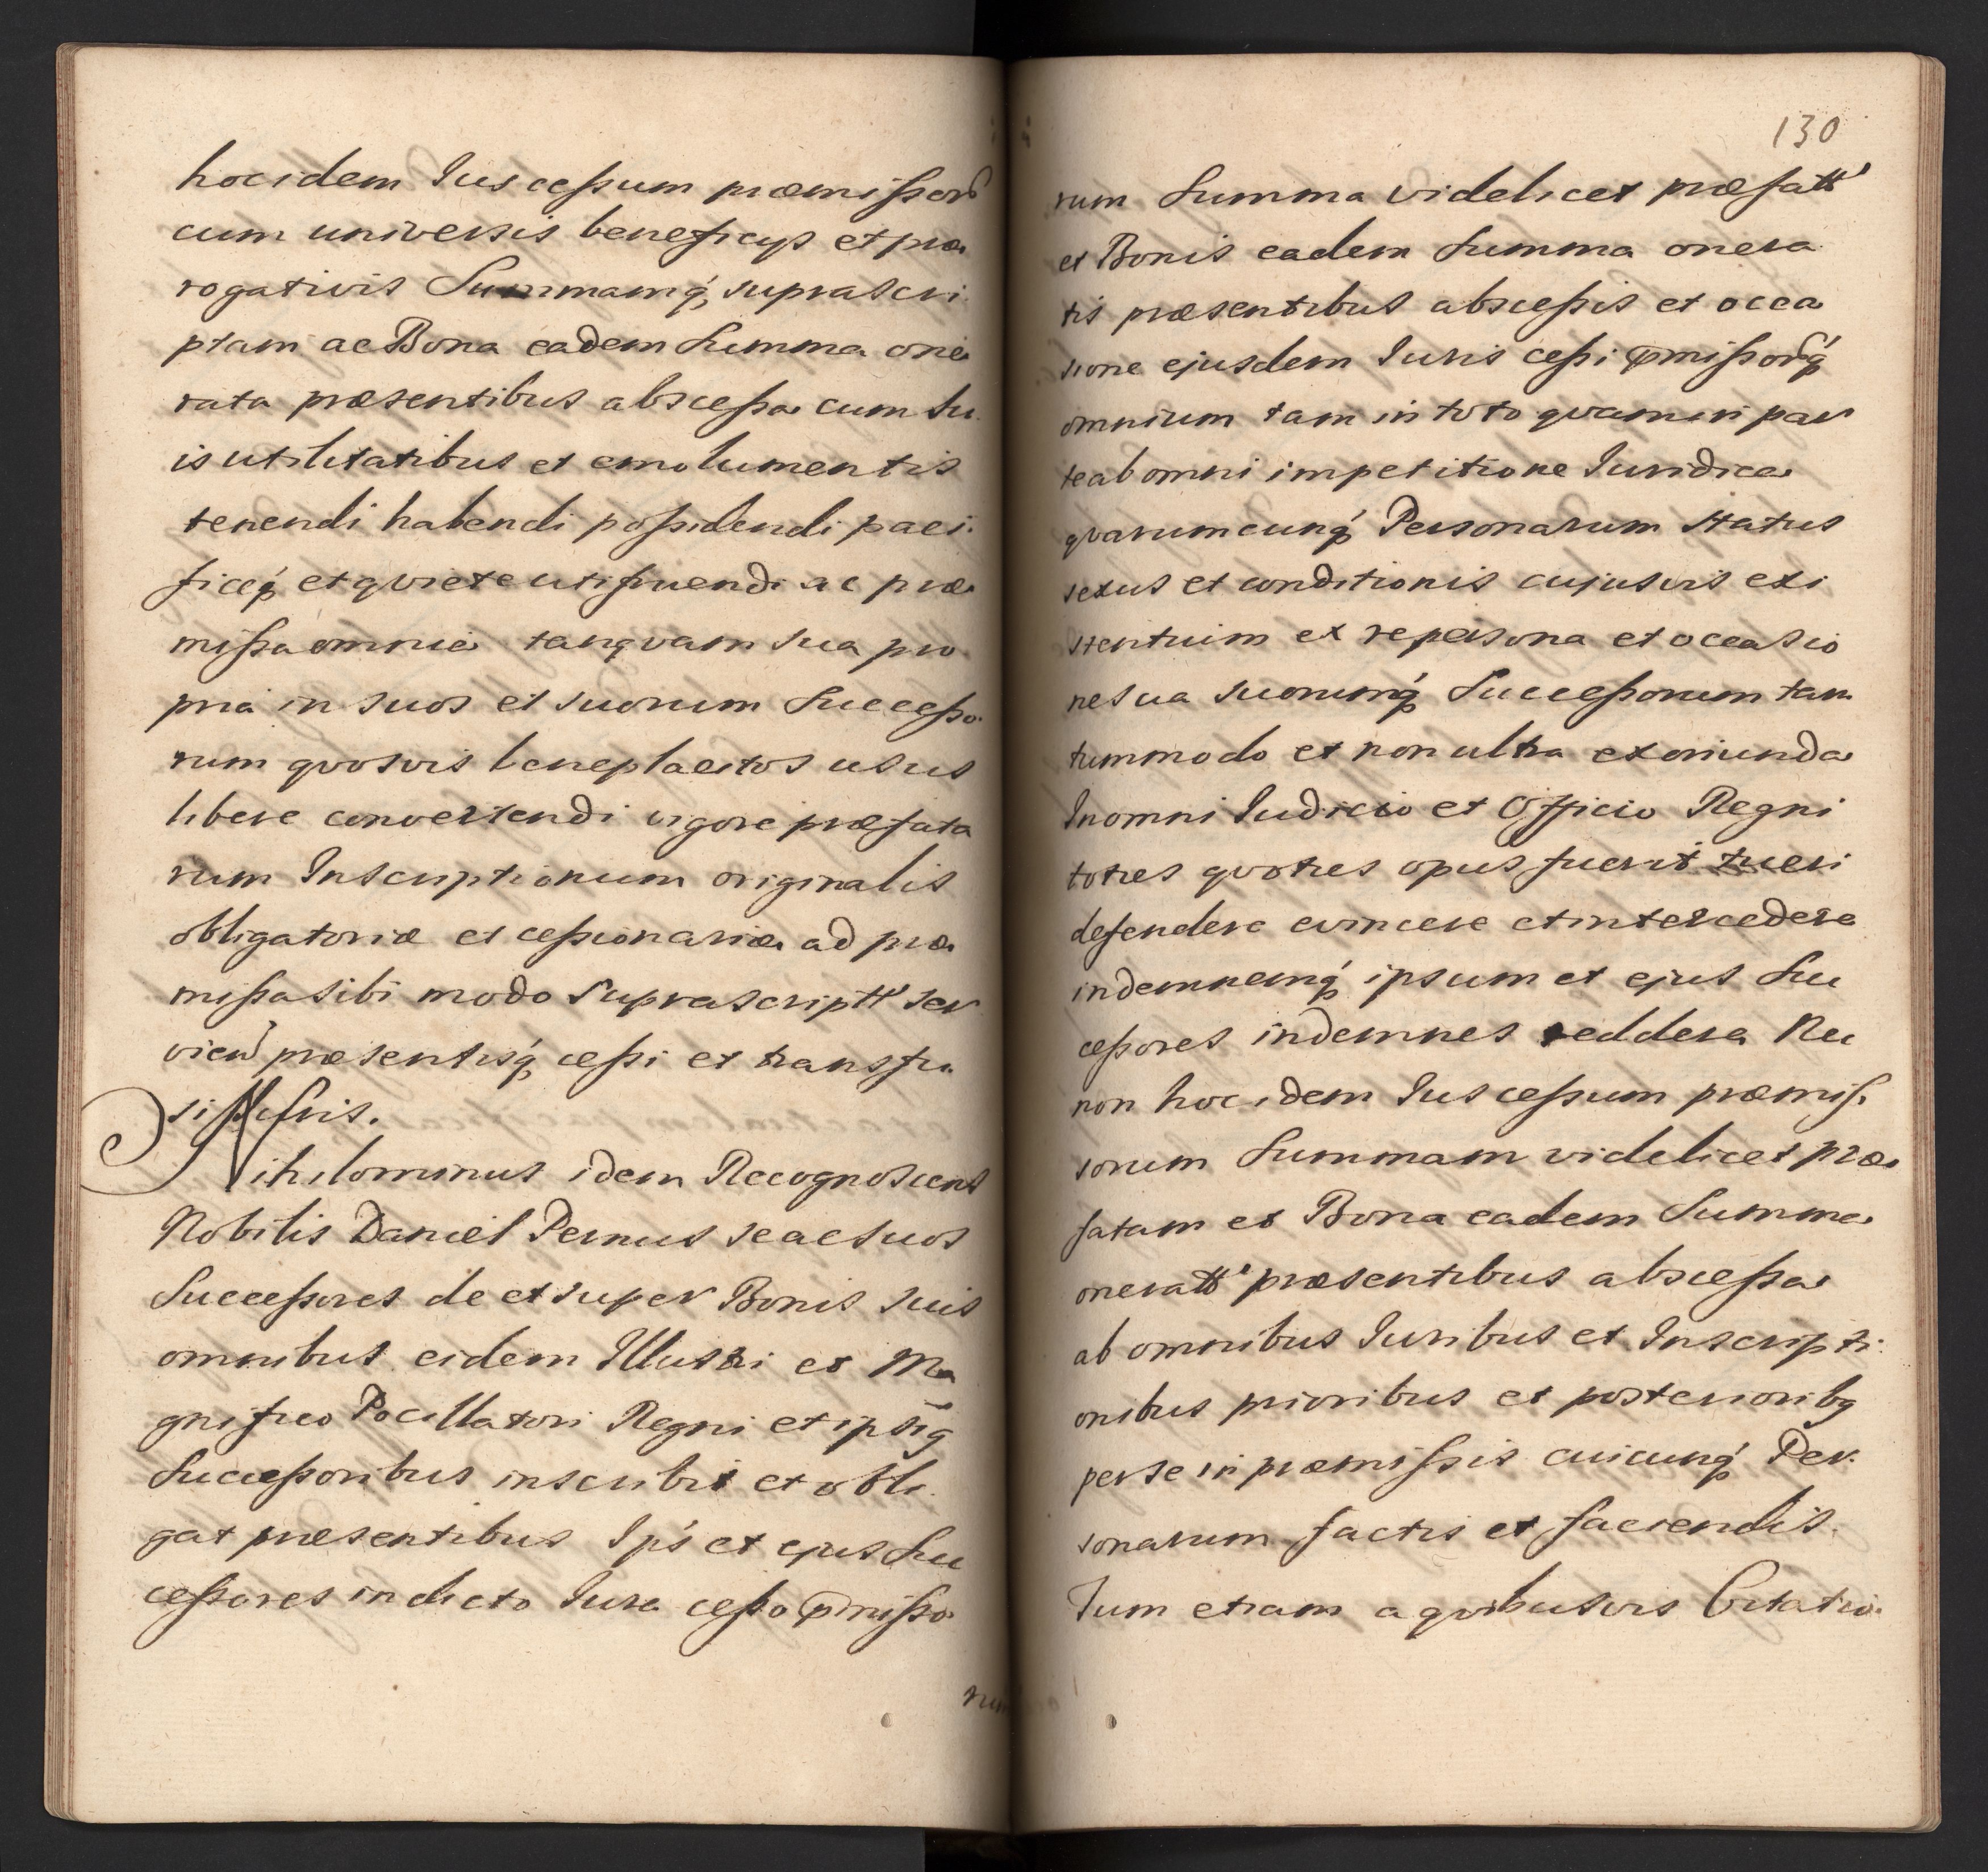 hoc idem Jus cessum præmissorū
cum universis beneficys et præ
rogativis Summamq́, suprascri
ptam ac Bona eadem Summa one
rata præsentibus abscessa cum su
is utilitatibus et emolumentis
tenendi habendi possidendi paci.
ficeq́ et qviete uti fruendi ac præ
missa omnia tanqvam sua pro
pria in suos et suorum Successo
rum qvosvis beneplacitos usus
libere convertendi vigore præfata
rum Inscriptionum originalis
obligatoriæ et cessionariæ ad præ
missa sibi modo suprascriptt' ser
vień præsentisq́, cessi et transfu
si Juris.
Nihilominus idem Recognoscens
Nobilis Daniel Pernus se ac suos
Successores de et super Bonis suis
omnibus eidem Illustri et Ma
gnifico Pocillatori Regni et ipsiq
Successoribus inscribit et obli.
gat præsentibus Ips's et ejus Suc
cessores in dicto Jure cesso p̄misso
rum
130
rum Summa videlicet præfatt'
et Bonis eadem Summa onera
tis præsentibus abscessis et occa
sione ejusdem Juris cessi p̄missorq́
omnium tam in toto qvam in par
te ab omni impetitione Juridica
qvarumcunq́ Personarum status
sexus et conditionis cujusvis exi
stentium ex re persona et occasio
ne sua suorumq́ Successorum tan
tummodo et non ultra exoriunda
In omni Judicio et Officio Regni
toties qvoties opus fuerit tueri
defendere evincere et intercedere
indemnemq́ ipsum et ejus Suc
cessores indemnes reddere Nec
non hoc idem Jus cessum præmis.
sorum Summam videlicet præ
fatam et Bona eadem Summa
oneratt' præsentibus abscessa
ab omnibus Juribus et Inscripti.
onibus prioribus et posteriorib9
per se in præmissis cuicunq́ Per.
sonarum factis et faciendis.
Tum etiam a qvibusvis Citatio.